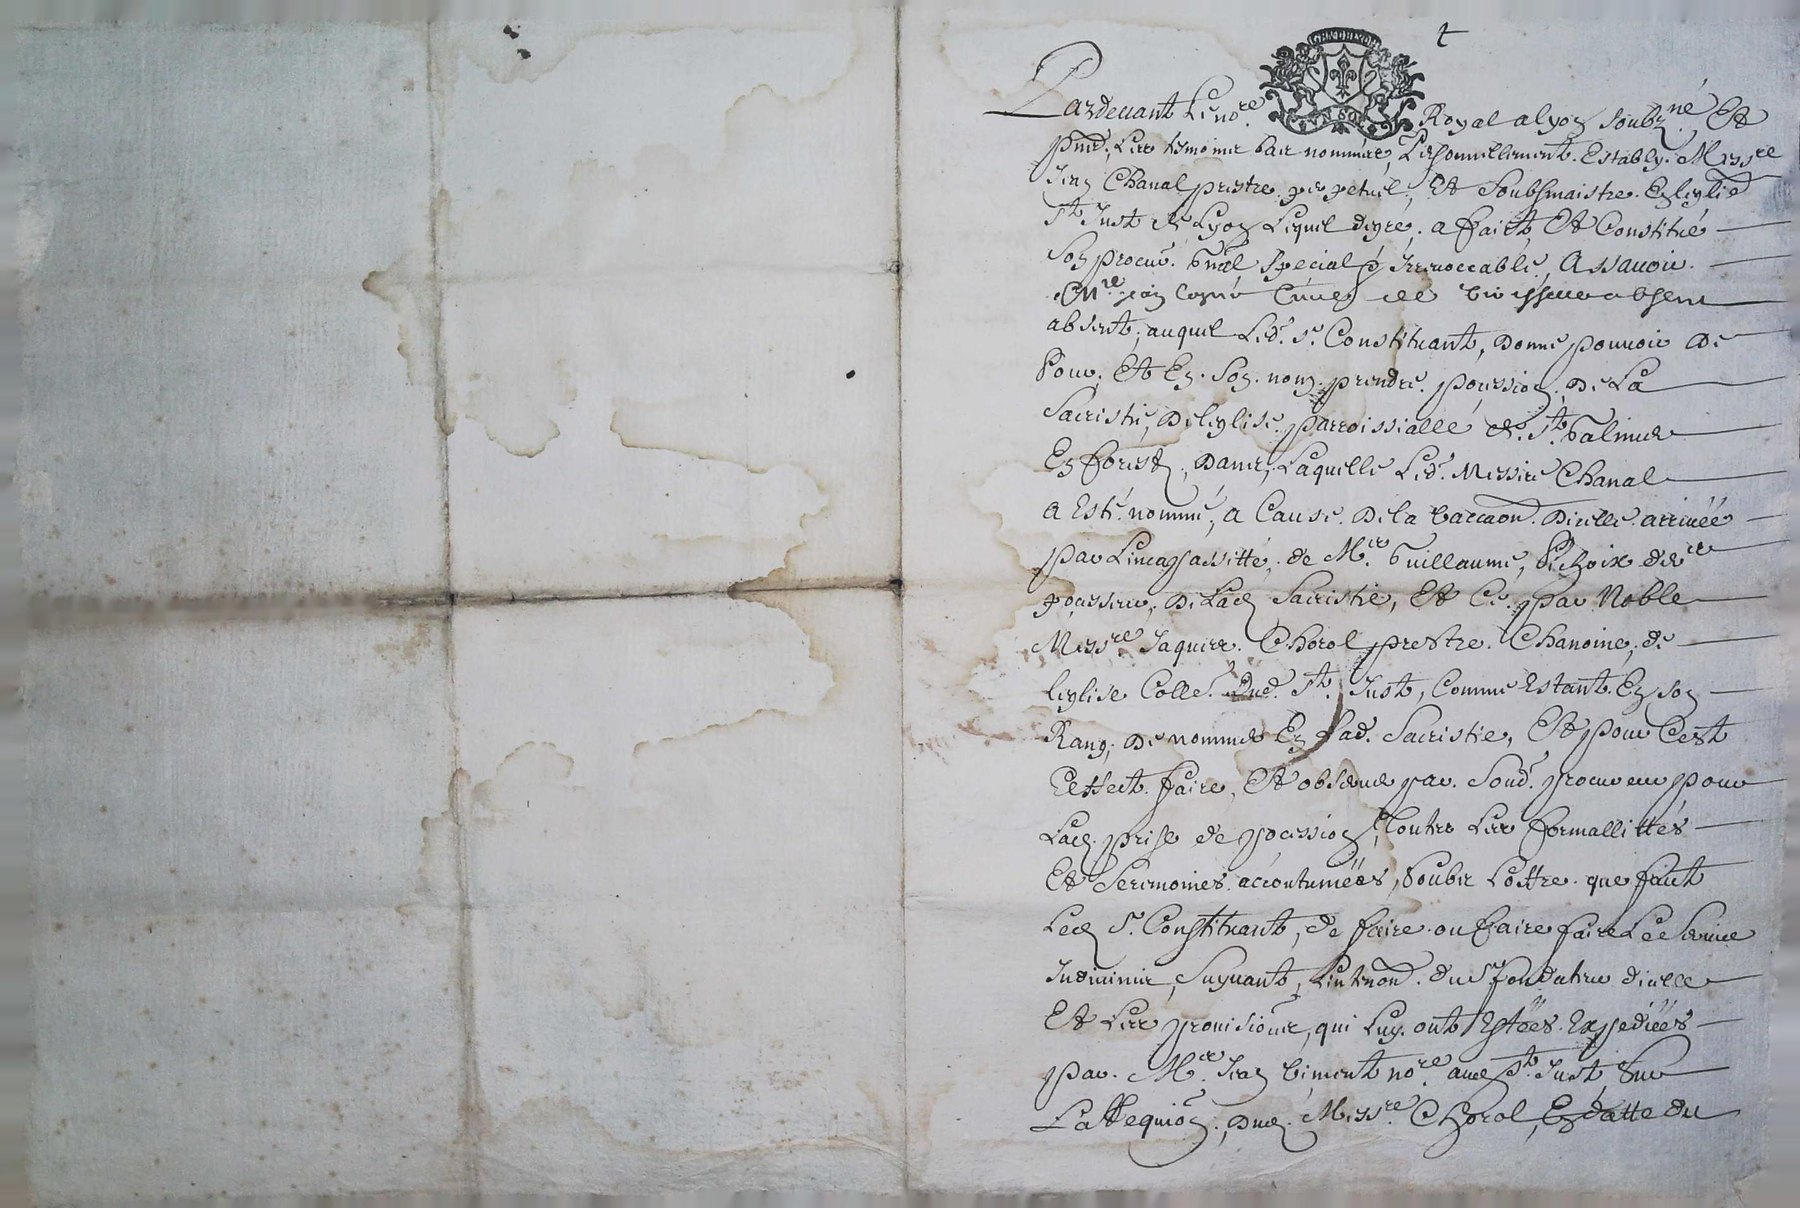 Pardevant Le no.re Royal a lyon soubz.né Et
pnts. Les tesmoins bas nommés, Personnellement. Estably. Messre
Jean Chanal prestre perpetuel, Et Soubsmaistre. En leglise
St. Just de Lyon Lequel degré. a faict Et Constitué
Son procur. gnal special & Irrevoccable, Assavoir.
Mre absent
absent, auquel Led. sr. Constituant, donne pouvoir De
Pour, Et En. Son. nom. prendre. poession. De La
Sacristie, De leglise. parroissialle de. St. Galmier
En forest, Dans, Laquelle Led. Messire Chanal
a Esté. nommé, a Cause. De la vaccaon. Dicelle. arrivée
par Lincapassitté, de Mr. Guillaume, der
possesseur, De Lad Sacristie, Et Ce. par Noble
Messre Jaques. Chorol prestre. Chanoine, de
leglise Colle. Dud. St. Just, Comme Estant. En son
Rang, De nommer En Lad. Sacristie, Et pour Cest
Effect. faire, Et observer par. Sond. procureur pour
Lad. prise de poession, toutes Les formallittés
Et Serimonies. accoutumées, Soubz Loffre. que faict
Led Sr. Constituant, de faire. ou faire faire Le Service
Suyvant, Lintenon. du Sr fondateur dicelle
Et Les provisions, qui Luy. ont Estées. Expediées
par. Mr. Jean Viment nore aud St. Just, Sur
La Requion, Dud. Messre Chorol, En datte du